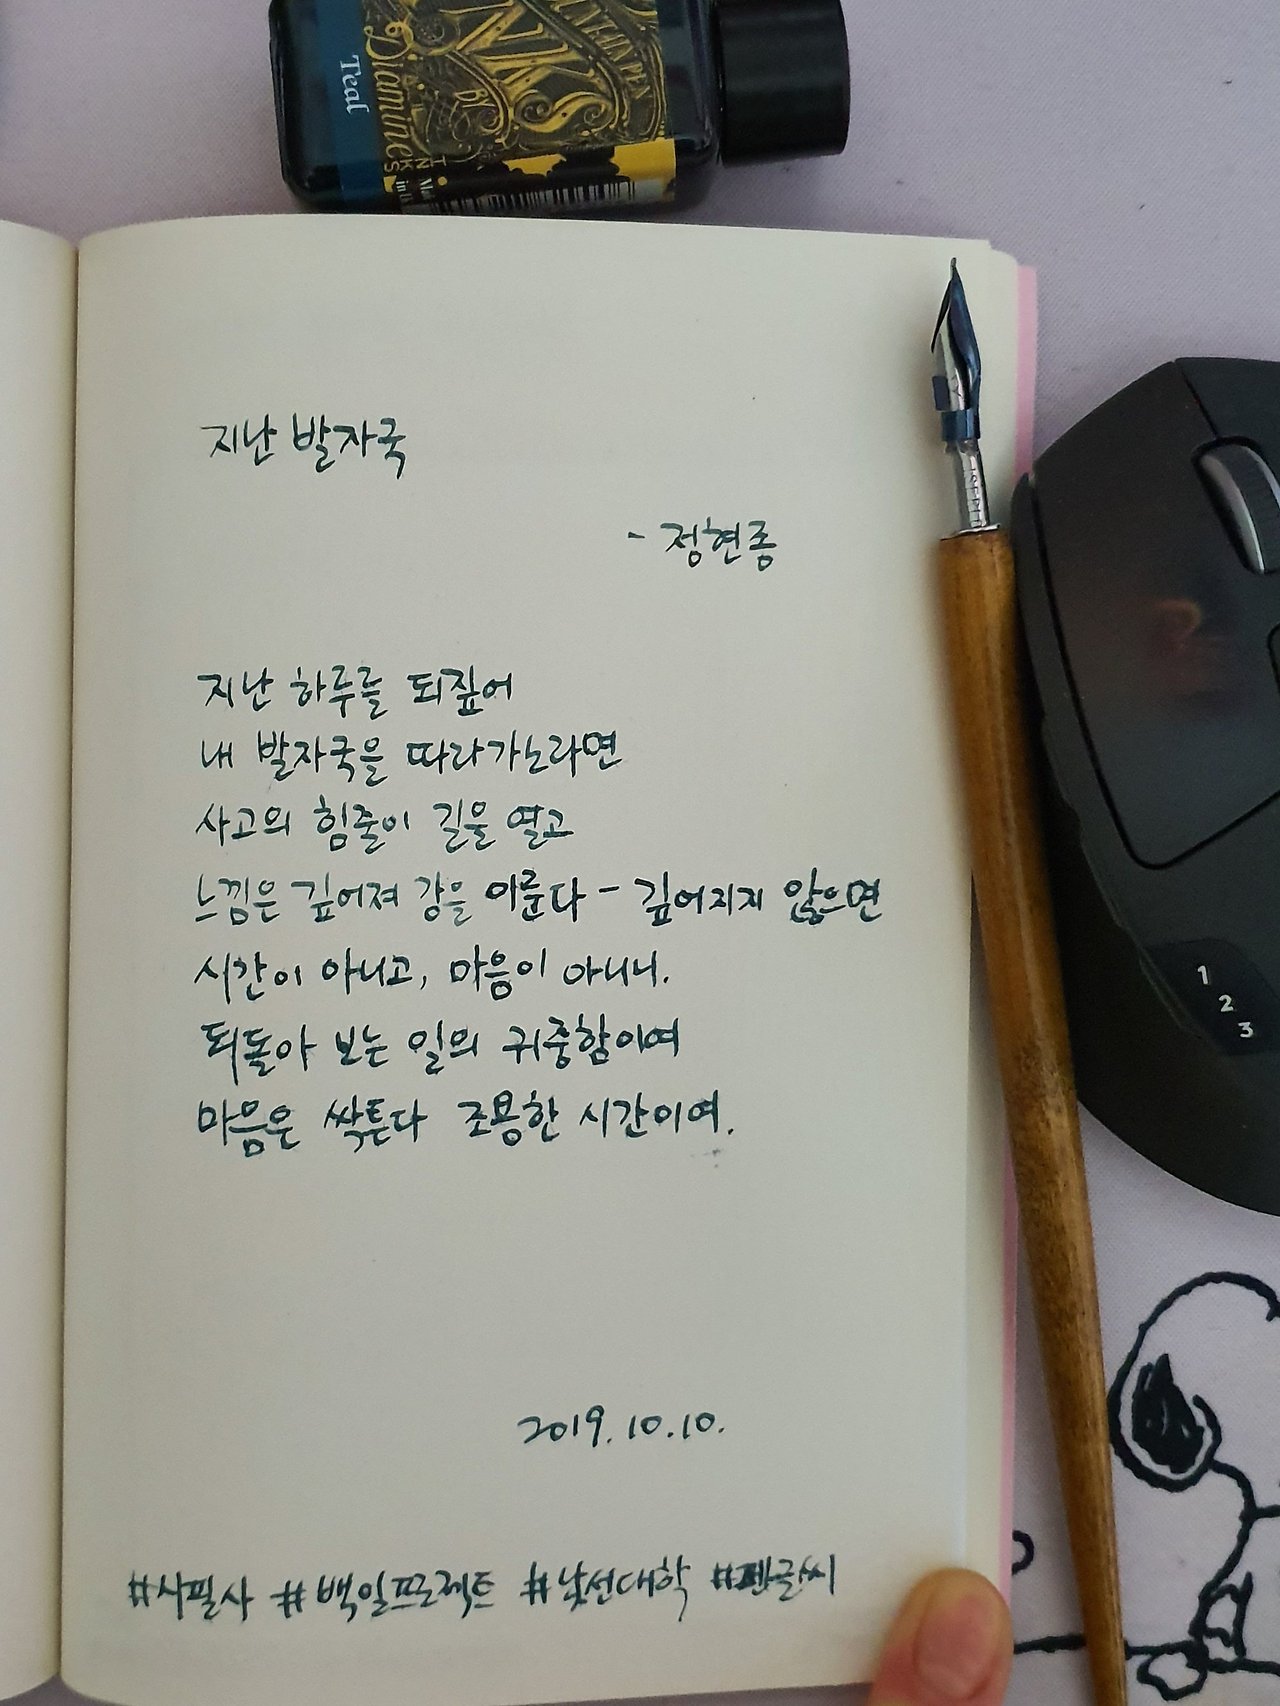 Teal
Diamine
INKS
BY
지난 발자국
- 정현종
지난 하루를 되짚어
내 발자국을 따라가노라면
사고의 힘줄이 길을 열고
느낌은 깊어져 강을 이룬다 - 깊어지지 않으면
시간이 아니고, 마음이 아니니.
되돌아 보는 일의 귀중함이여
마음은 싹튼다 조용한 시간이여.
2019.10.10.
#시필사 #백일프로젝트 #낯선대학 #펜글씨
1
2
3